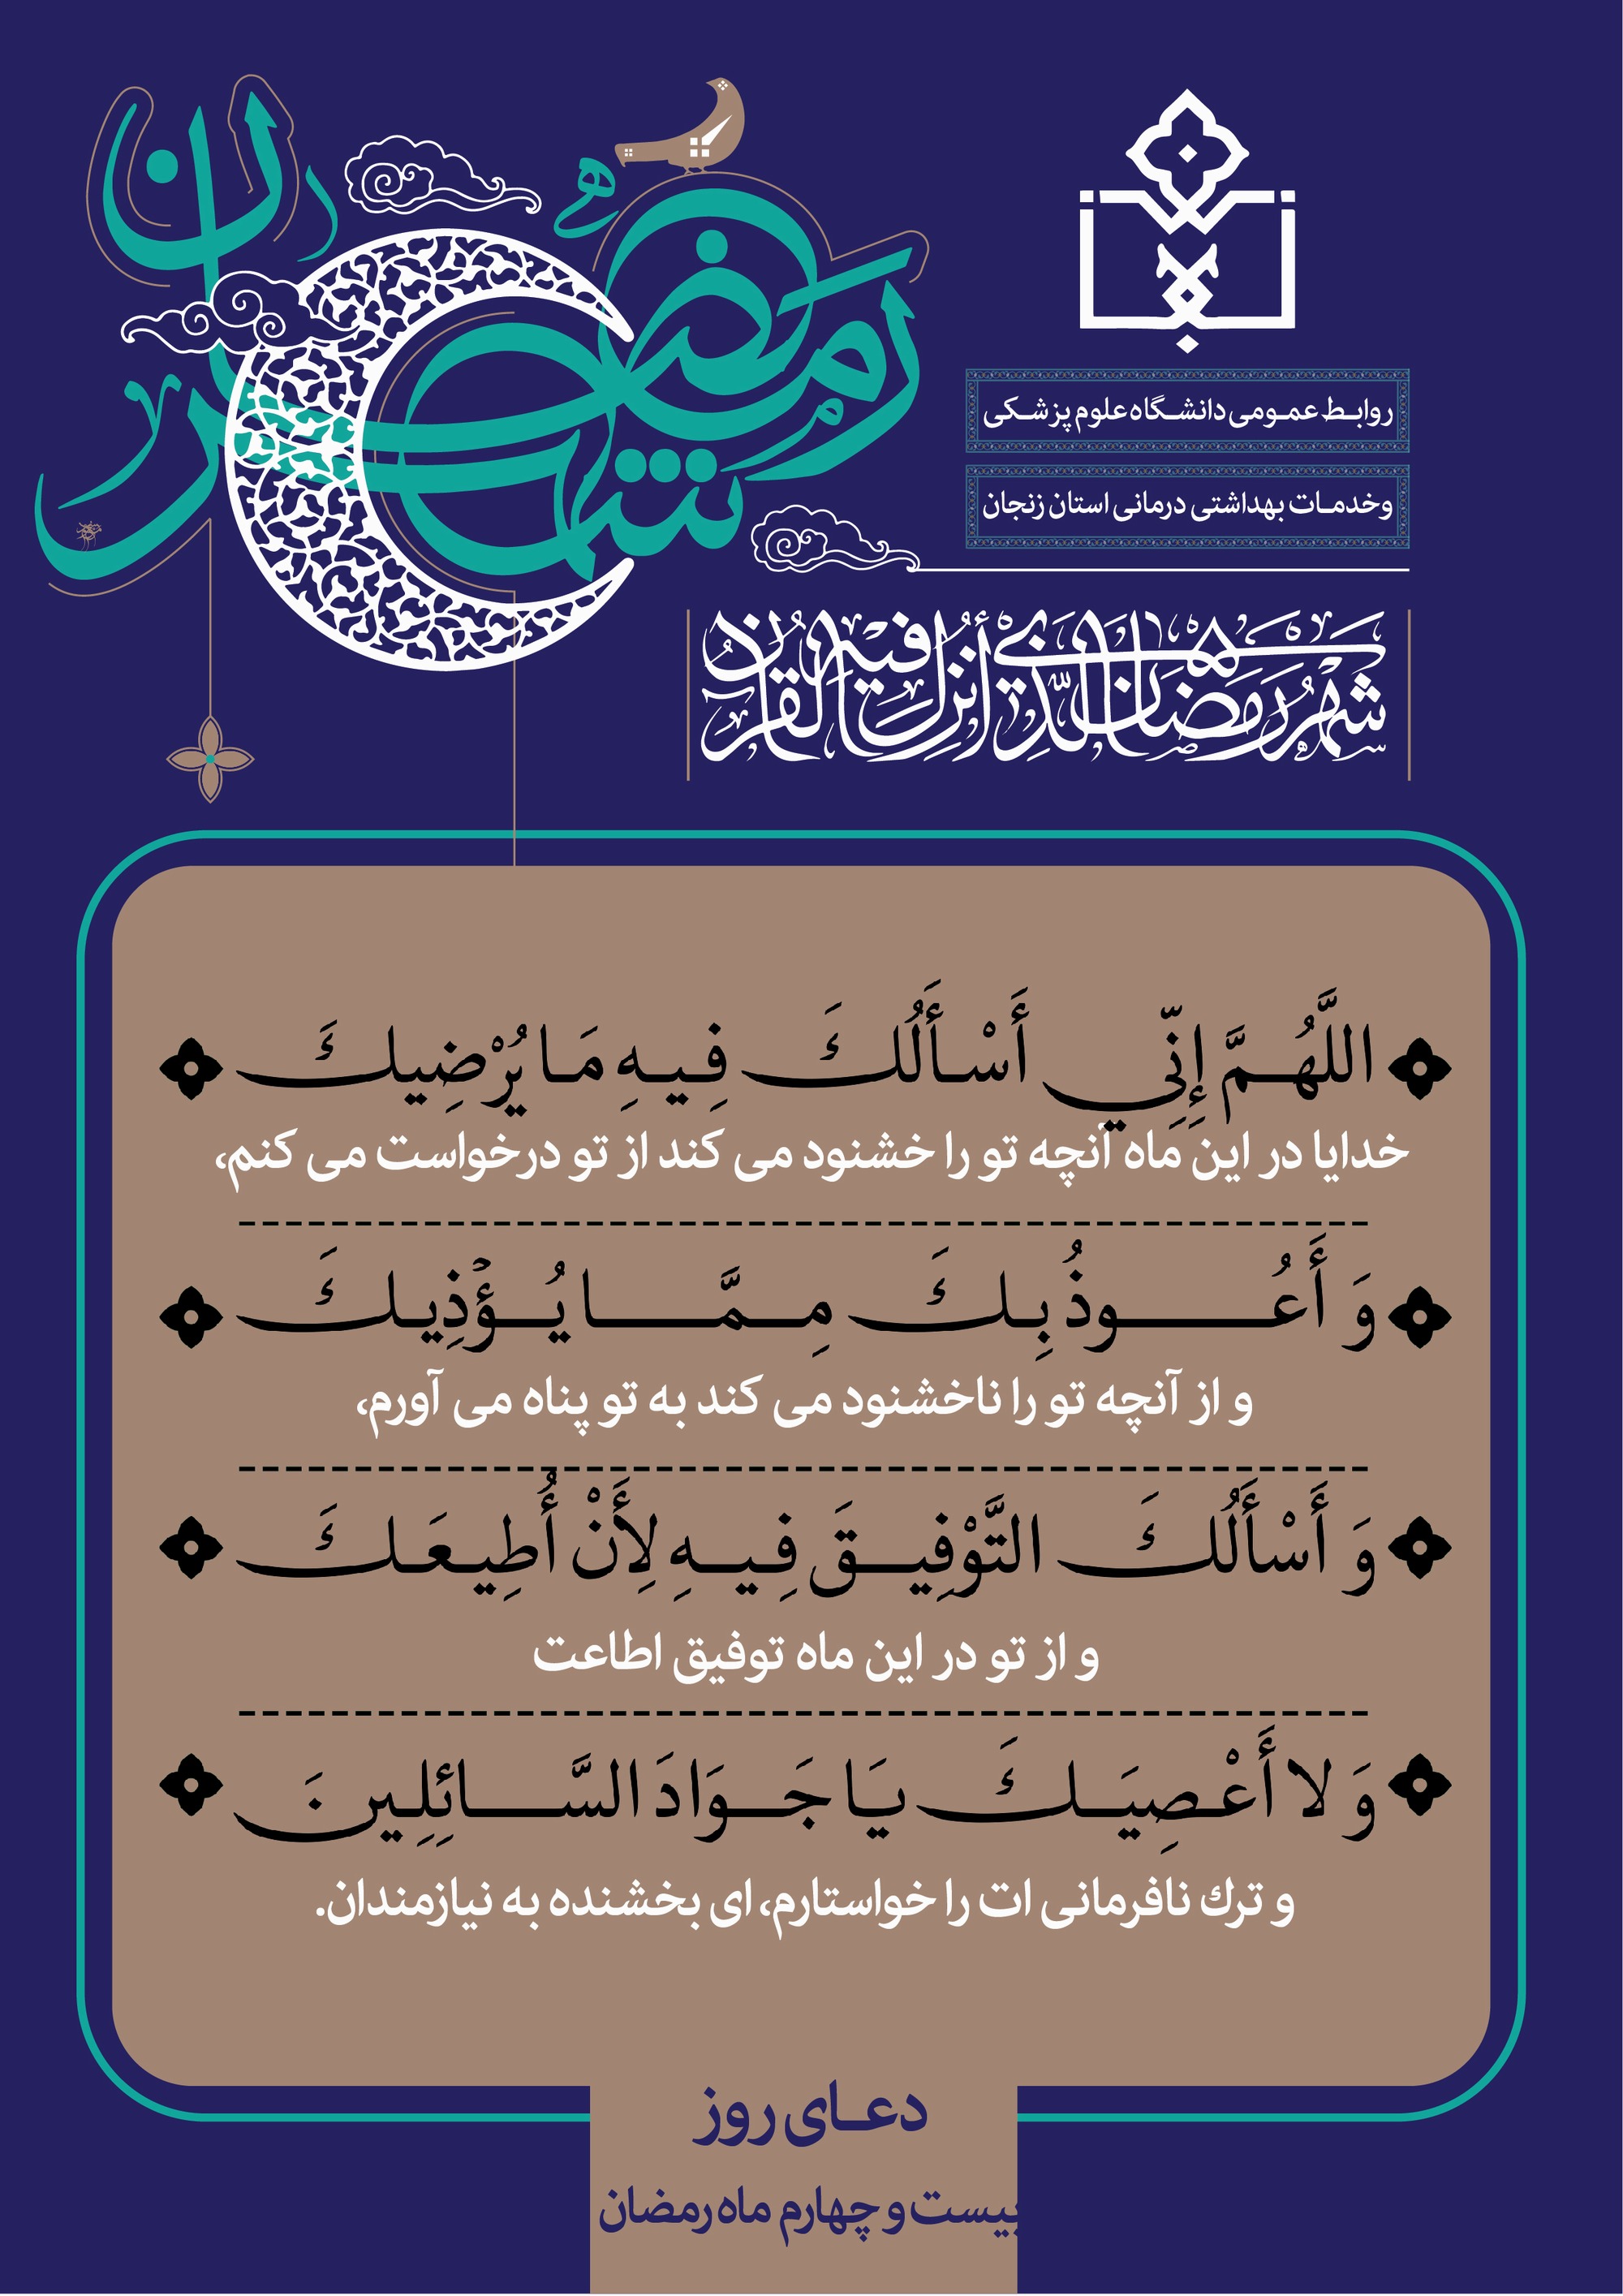 شهر رمضان
روابط عمومی دانشگاه علوم پزشکی
وخدمات بهداشتی درمانی استان زنجان
شهر رمضان الذي أنزل فيه القرآن
اللَّهُمَّ إِنِّي أَسْأَلُكَ فِيهِ مَا يُرْضِيكَ
خدایا در این ماه آنچه تو را خشنود می کند از تو درخواست می کنم،
وَ أَعُوذُ بِكَ مِمَّا يُؤْذِيكَ
و از آنچه تو را ناخشنود می کند به تو پناه می آورم،
وَ أَسْأَلُكَ التَّوْفِيقَ فِيهِ لِأَنْ أُطِيعَكَ
و از تو در این ماه توفیق اطاعت
وَ لا أَعْصِيَكَ يَا جَوَادَ السَّائِلِينَ
و ترك نافرمانی ات را خواستارم، ای بخشنده به نیازمندان.
دعای روز
بیست و چهارم ماه رمضان